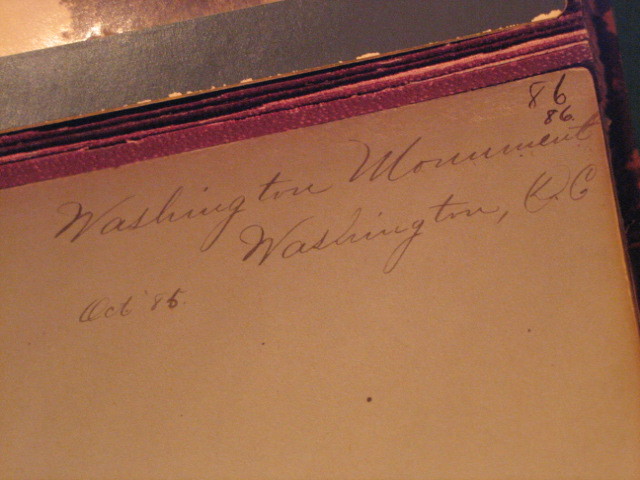 86
86
Washington Monument
Washington, D.C
Oct '85.